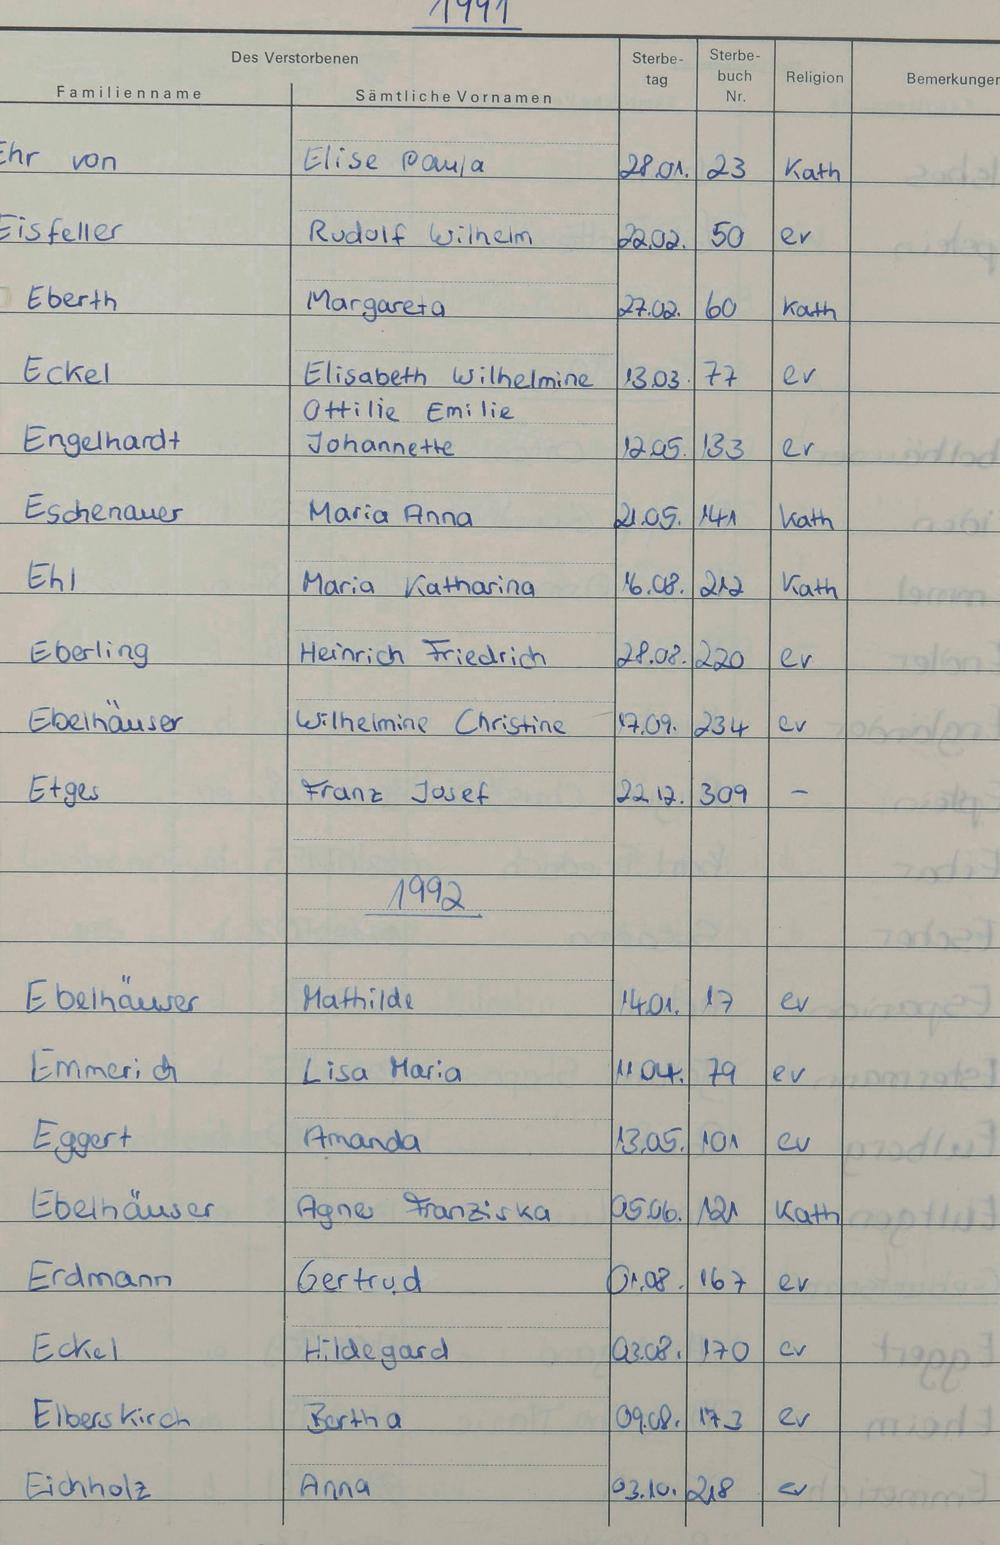 1991
Des Verstorbenen Sterbe- Sterbe-
tag buch Religion Bemerkungen
Familienname Sämtliche Vornamen Nr.
Ehr von Elise Paula 28.01. 23 Kath
Eisfeller Rudolf Wilhelm 22.02. 50 ev
Eberth Margareta 27.02. 60 Kath
Eckel Elisabeth Wilhelmine 13.03. 77 ev
Ottilie Emilie
Engelhardt Johannette 12.05. 133 ev
Eschenauer Maria Anna 21.05. 141 Kath
Ehl Maria Katharina 16.08. 212 Kath
Eberling Heinrich Friedrich 28.08. 220 ev
Ebelhäuser Wilhelmine Christine 17.09. 234 ev
Etges Franz Josef 22.12. 309 –
1992
Ebelhäuser Mathilde 14.01. 17 ev
Emmerich Lisa Maria 11.04. 79 ev
Eggert Amanda 13.05. 101 ev
Ebelhäuser Agnes Franziska 05.06. 121 Kath
Erdmann Gertrud 01.08. 167 ev
Eckel Hildegard 03.08. 170 ev
Elberskirch Bertha 09.08. 173 ev
Eichholz Anna 03.10. 218 ev